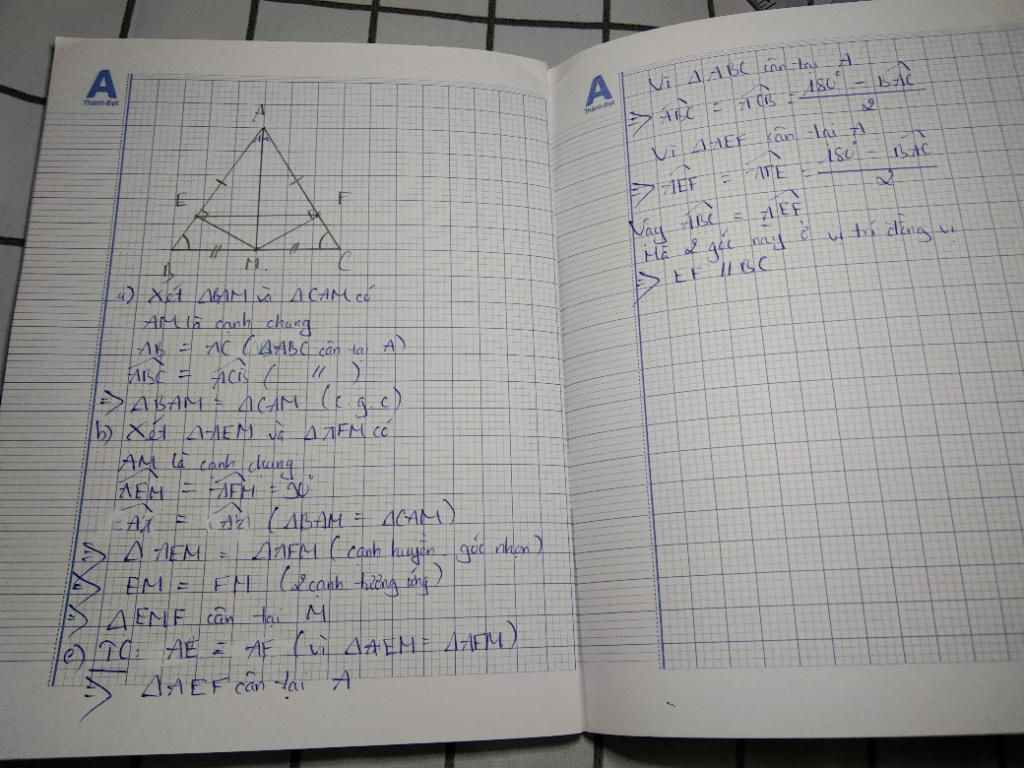 A
Thành Đạt
A
E
F
B
M.
C
a) Xét ΔBAM và ΔCAM có
AM là cạnh chung
AB = AC (ΔABC cân tại A)
ABC^ = ACB^ ( // )
=> ΔBAM = ΔCAM (c.g.c)
b) Xét ΔAEM và ΔAFM có
AM là cạnh chung
AEM^ = AFM^ = 90°
(ΔBAM = ΔCAM)
=> ΔAEM = ΔAFM (cạnh huyền góc nhọn)
=> EM = FM (2 cạnh tương ứng)
=> ΔEMF cân tại M
c) TC: AE = AF (vì ΔAEM = ΔAFM)
=> ΔAEF cân tại A
A
Thành Đạt
Vì ΔABC cân tại A
=> ABC^ = ACB^ = (180° - BAC^)/2
Vì ΔAEF cân tại A
=> AEF^ = AFE^ = (180° - BAC^)/2
Vậy ABC^ = AEF^
Mà 2 góc này ở vị trí đồng vị
=> EF // BC